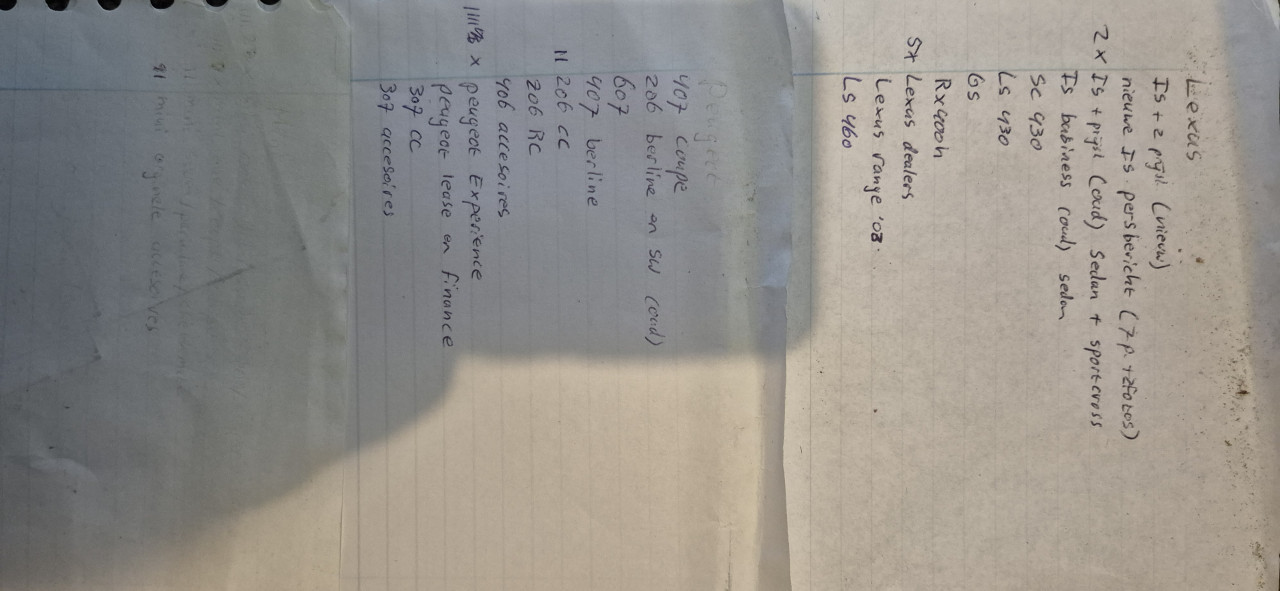 Lexus
Is + 2 prijsl. (nieuw)
nieuwe Is persbericht (7 p. + 2 fotos)
2x Is + prijsl (oud) Sedan + sportcross
Is babiness (oud) sedan
Sc 430
Ls 430
Gs
Rx400h
5x Lexus dealers
Lexus range '03.
Ls 460
Peugeot
407 coupé
206 berline en SW (oud)
607
407 berline
11 206 cc
206 RC
406 accesoires
x peugeot Experience
peugeot lease en finance
307 cc
307 accesoires
mini originele accesoires